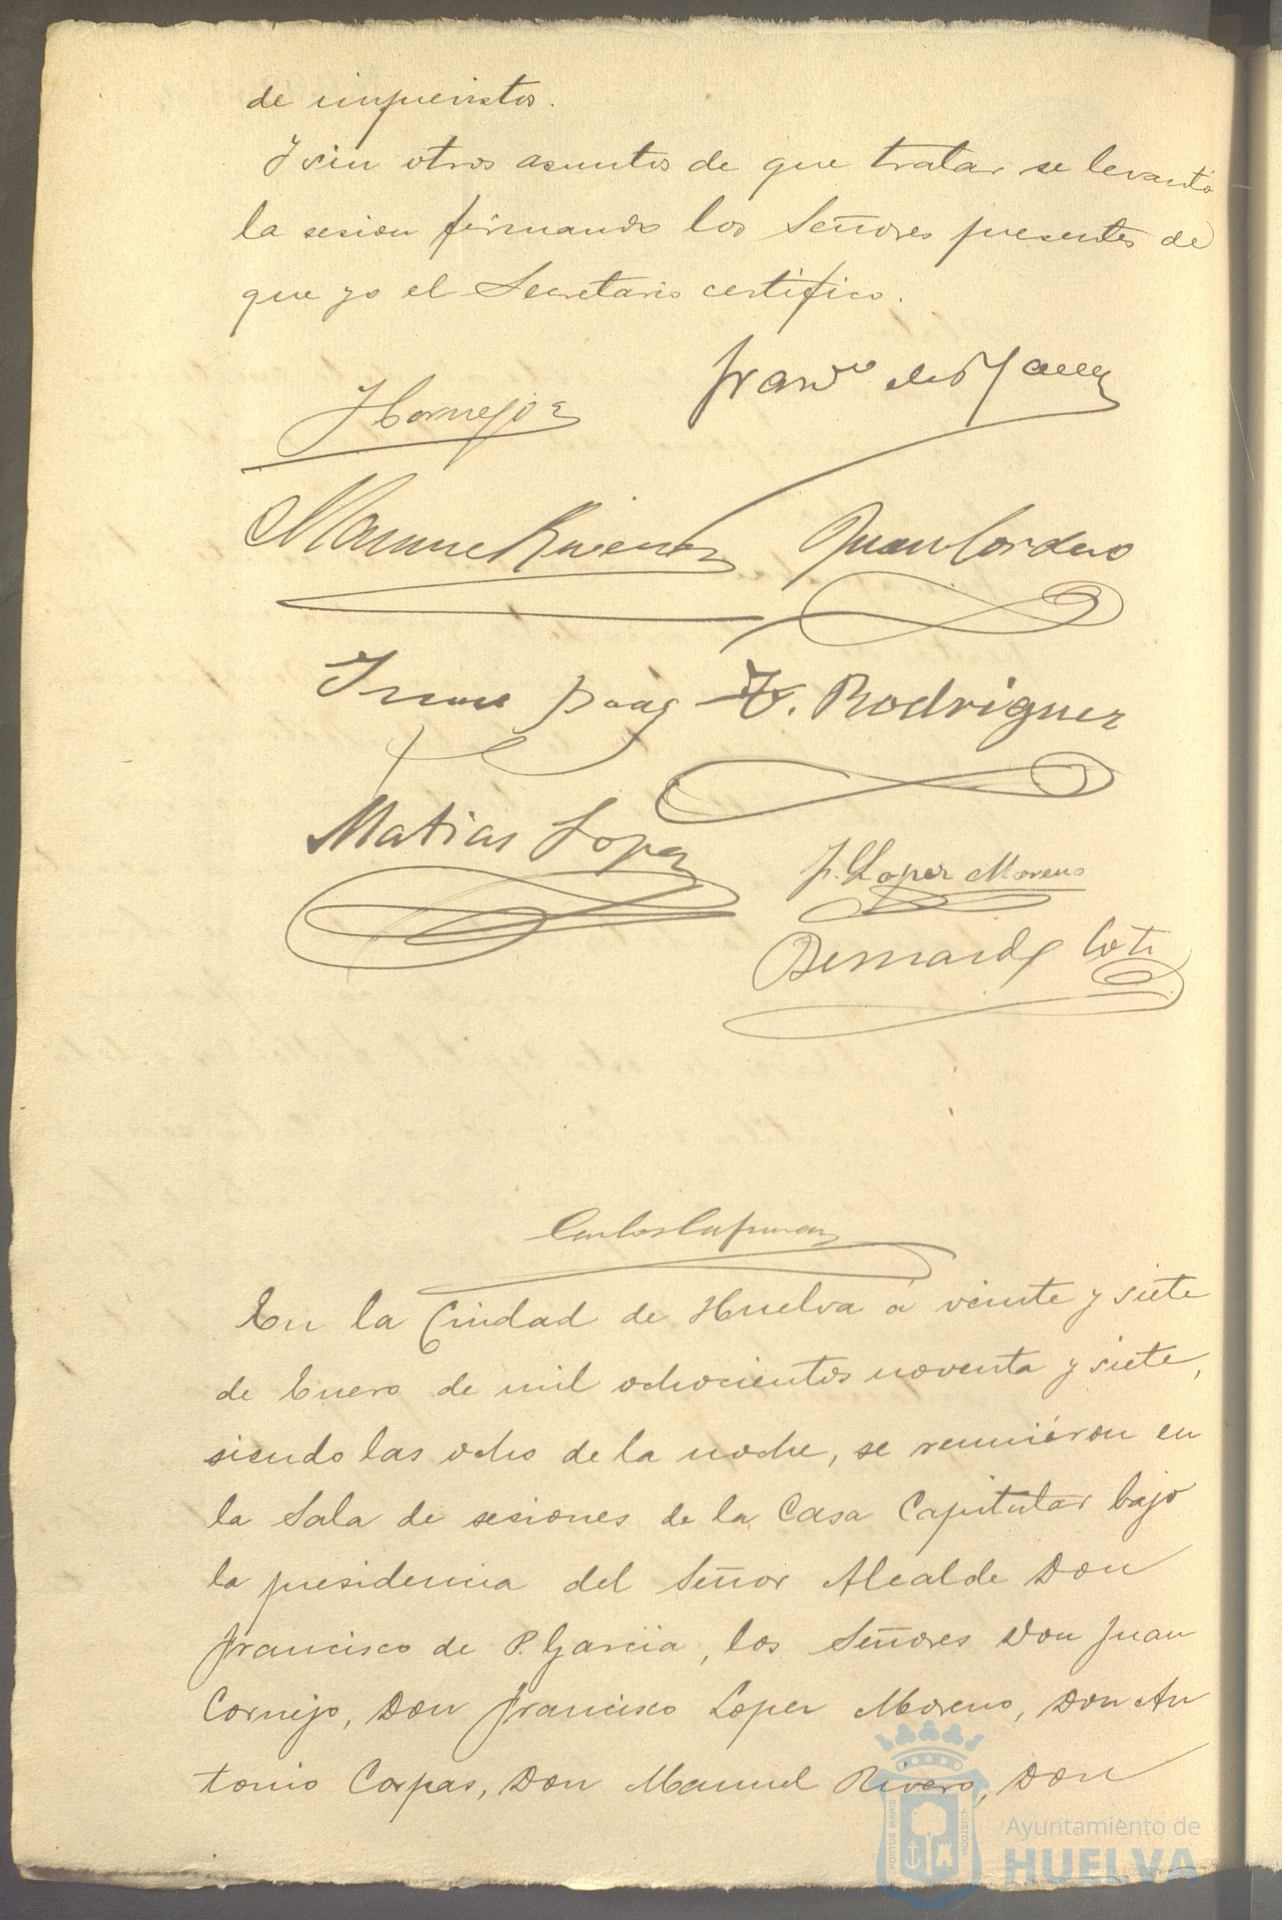 de impuestos.
Y sin otros asuntos de que tratar se levantó
la sesion firmando los Señores presentes de
que yo el Secretario certifico.
Franco de P.
Cornejo
Manuel Rivero
Juan Cordero
F. Rodriguez
Matias Lopez
F. Lopez Moreno
Bernardo
Carlos
En la Ciudad de Huelva á veinte y siete
de Enero de mil ochocientos noventa y siete,
siendo las ocho de la noche, se reunieron en
la Sala de sesiones de la Casa Capitular bajo
la presidencia del Señor Alcalde Don
Francisco de P. Garcia, los Señores Don Juan
Cornejo, Don Francisco Lopez Moreno, Don An
tonio Corpas, Don Manuel Rivero, Don
PORTUS MARIS
CUSTODIA
Ayuntamiento de
HUELVA